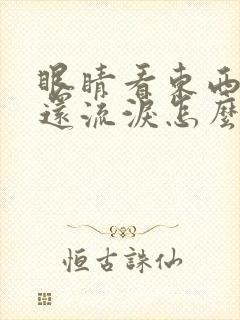 眼睛看東西
還流淚怎麼
恒古誅仙